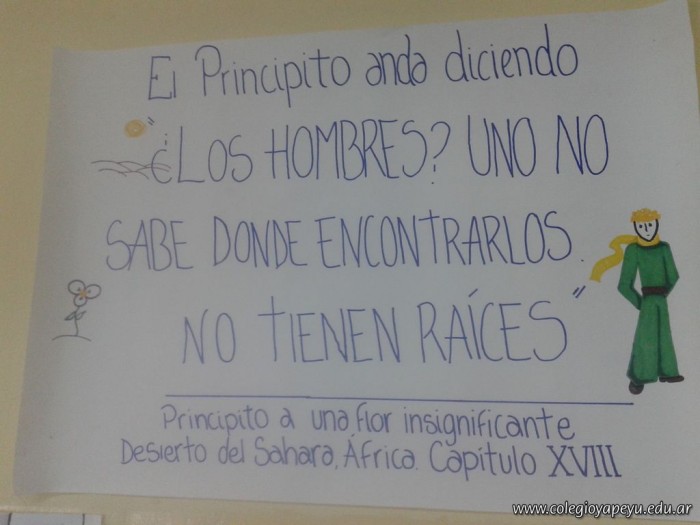 El Principito anda diciendo
"¿LOS HOMBRES? UNO NO
SABE DONDE ENCONTRARLOS.
NO TIENEN RAÍCES"
Principito a una flor insignificante
Desierto del Sahara, África. Capítulo XVIII
www.colegioyapeyu.edu.ar